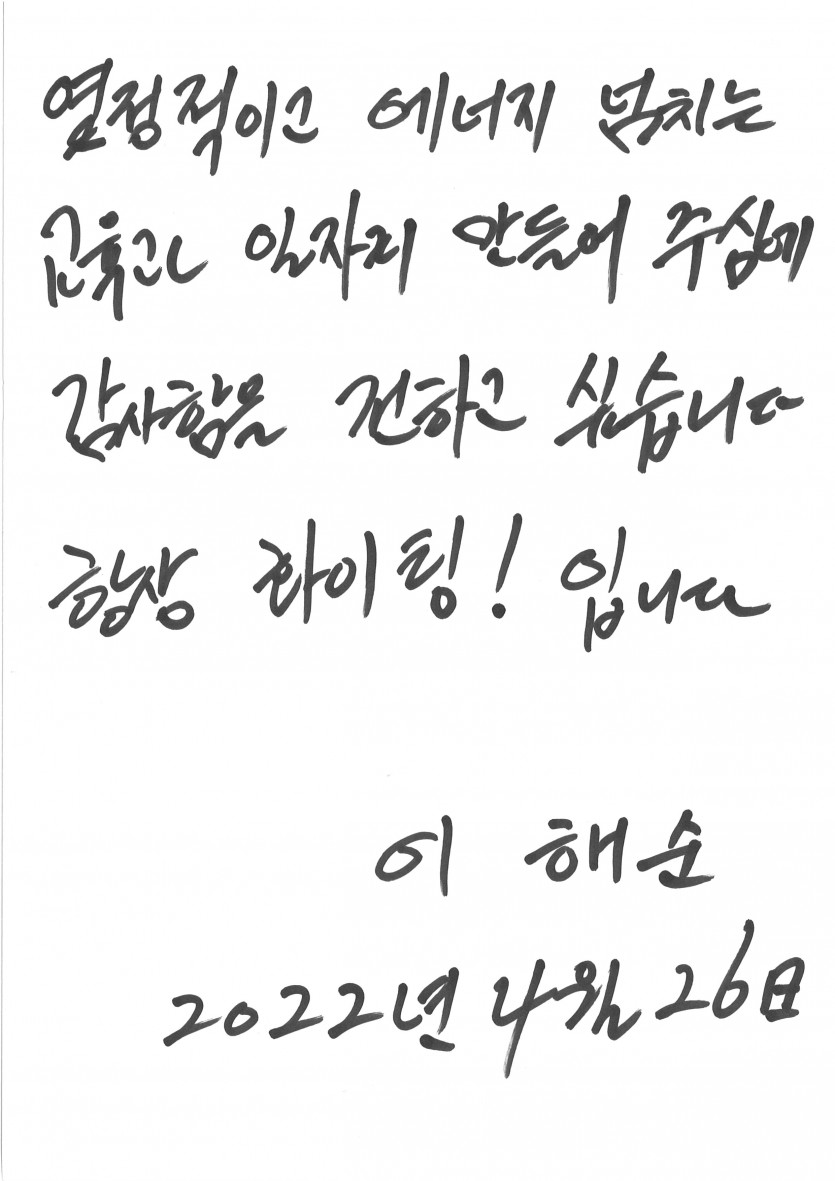 열정적이고 에너지 넘치는
교육과 일자리 만들어 주심에
감사함을 전하고 싶습니다
항상 화이팅! 입니다
이 해순
2022년 4월 26日